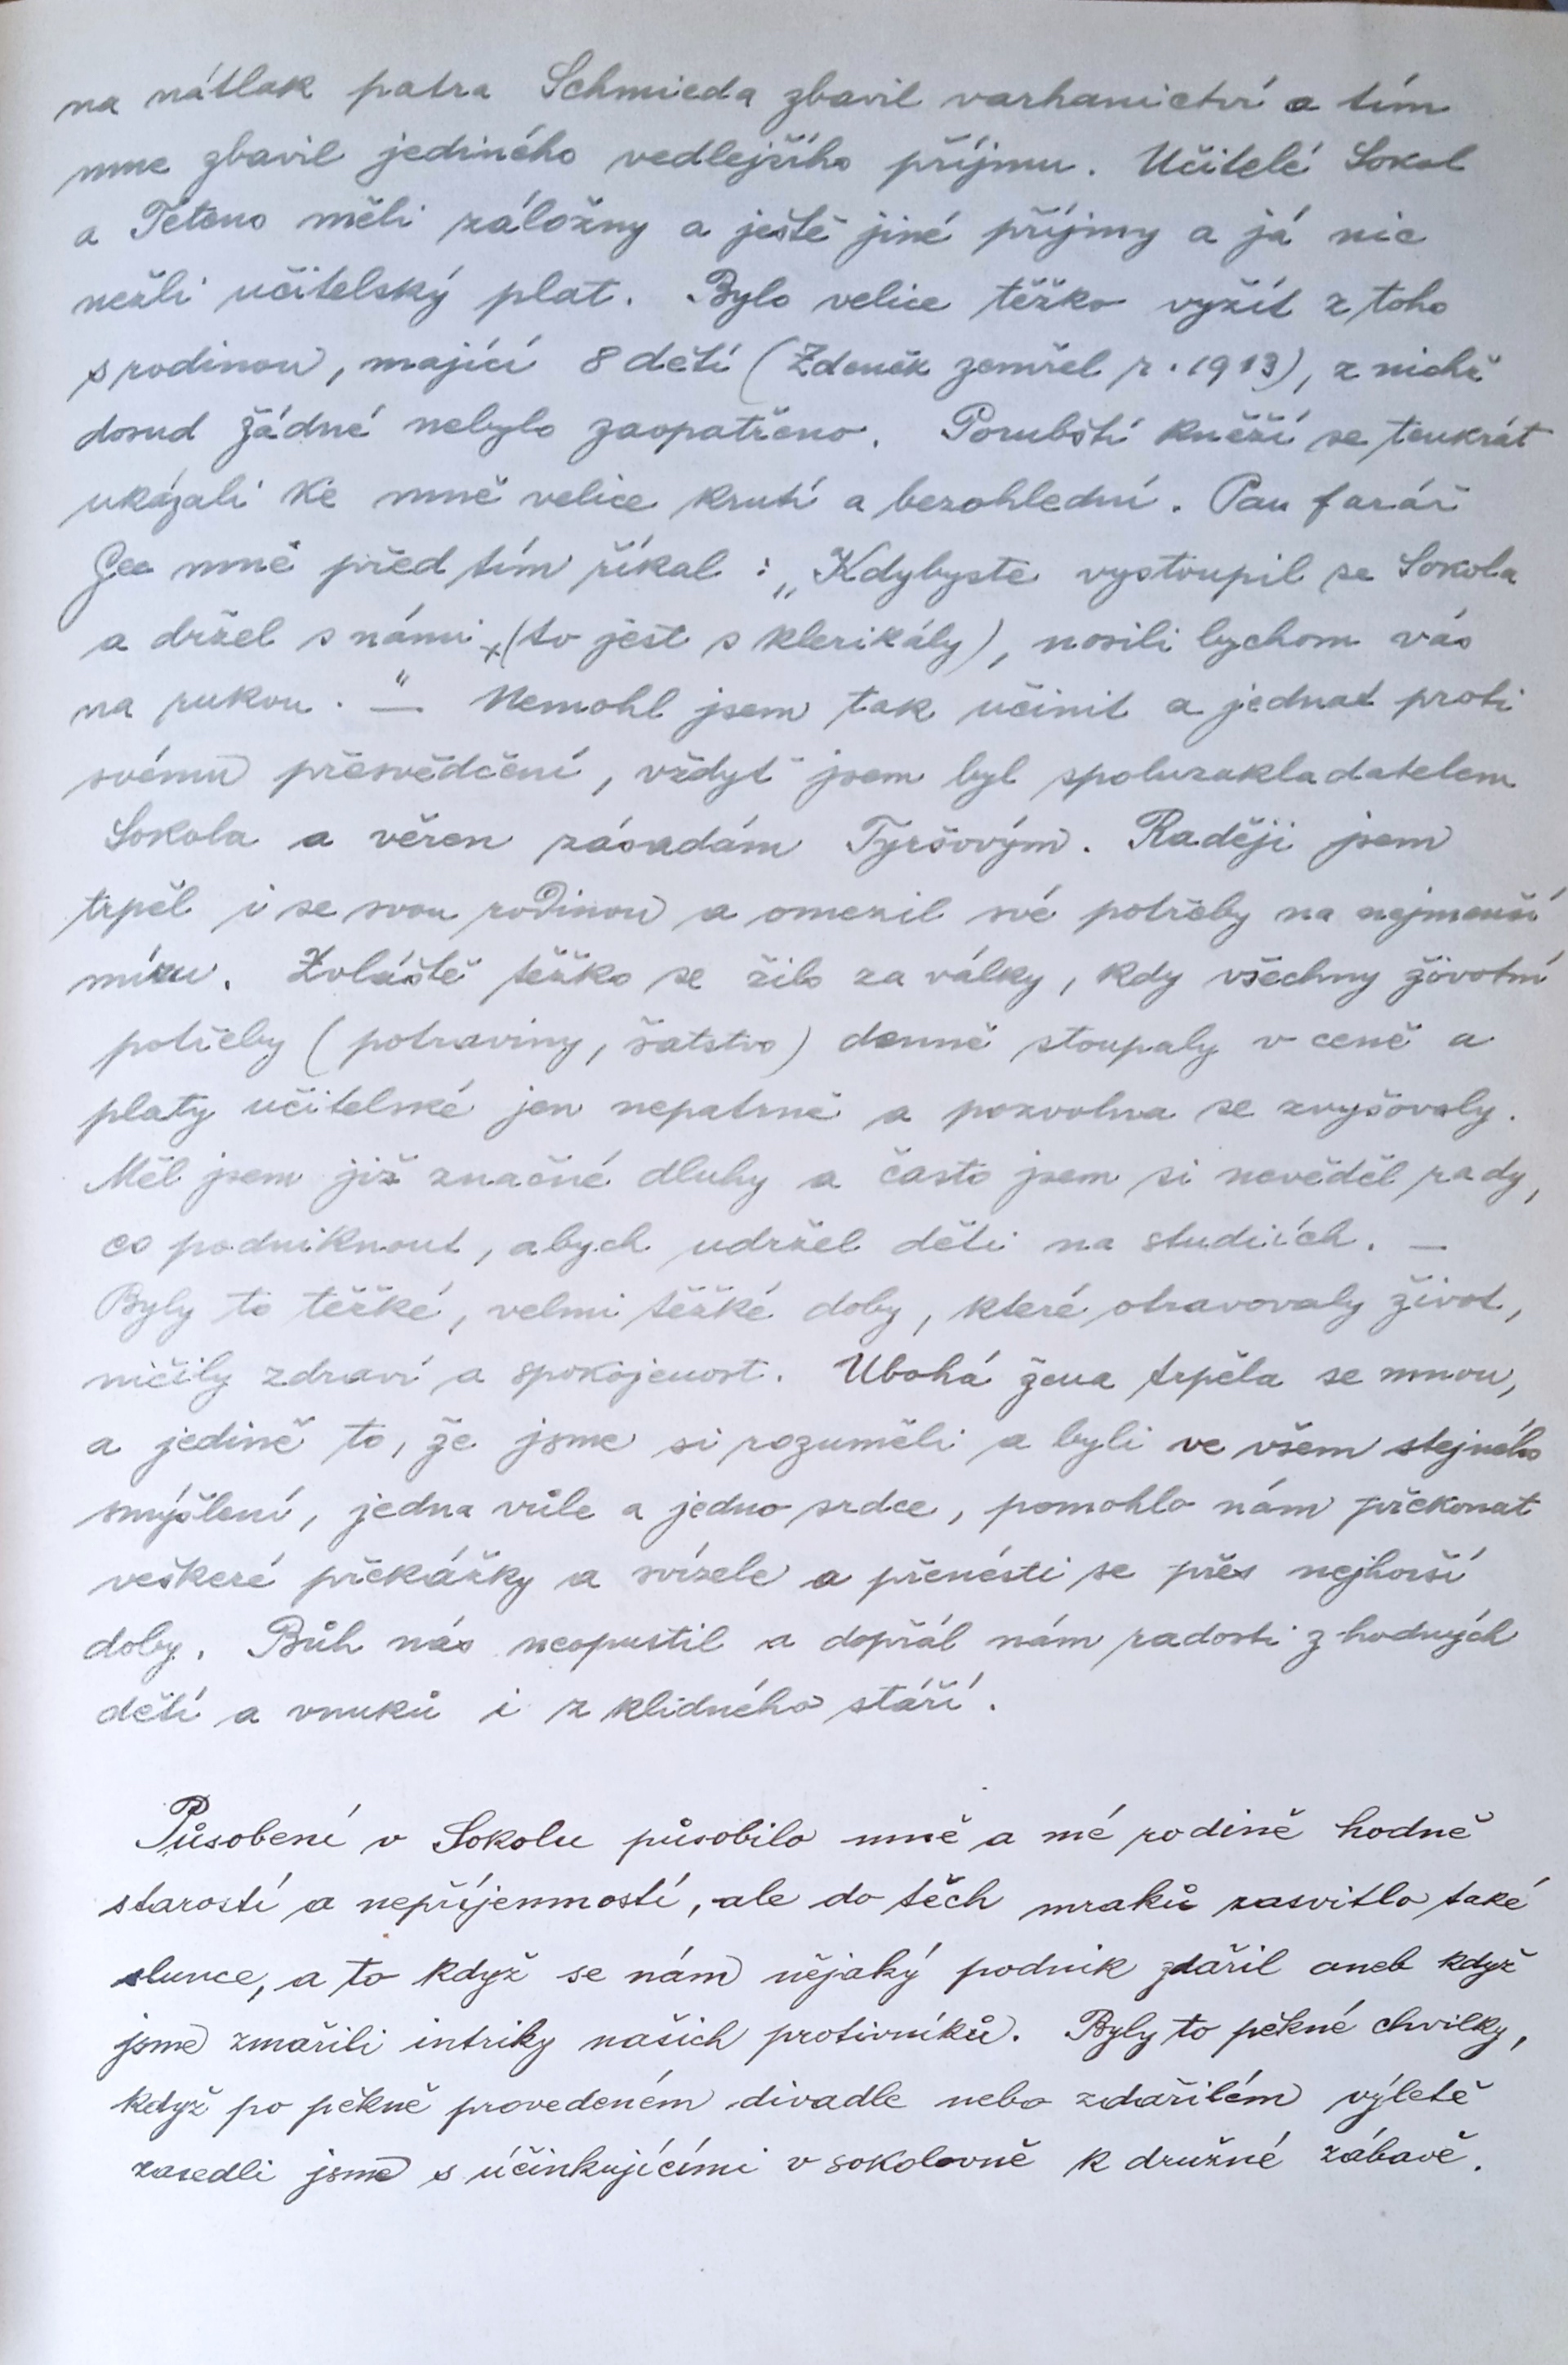 na nátlak patra Schmieda zbavil varhanictví a tím
mne zbavil jediného vedlejšího příjmu. Učitelé Sokol
a Téteno měli záložny a ještě jiné příjmy a já nic
nežli učitelský plat. Bylo velice těžko vyžít z toho
s rodinou, mající 8 dětí (Zdeněk zemřel r. 1913), z nichž
dosud žádné nebylo zaopatřeno. Porubští kněží se tenkrát
ukázali ke mně velice krutí a bezohlední. Pan farář
Gee mně před tím říkal : „Kdybyste vystoupil ze Sokola
a držel s námi x(to jest s klerikály), nosili bychom vás
na rukou. “ — Nemohl jsem tak učinit a jednat proti
svému přesvědčení, vždyť jsem byl spoluzakladatelem
Sokola a věren zásadám Tyršovým. Raději jsem
trpěl i se svou rodinou a omezil své potřeby na nejmenší
míru. Zvláště těžko se žilo za války, kdy všechny životní
potřeby (potraviny, šatstvo) denně stoupaly v ceně a
platy učitelské jen nepatrně a pozvolna se zvyšovaly.
Měl jsem již značné dluhy a často jsem si nevěděl rady,
co podniknout, abych udržel děti na studiích. —
Byly to těžké, velmi těžké doby, které otravovaly život,
ničily zdraví a spokojenost. Ubohá žena trpěla se mnou,
a jedině to, že jsme si rozuměli a byli ve všem stejného
smýšlení, jedna vůle a jedno srdce, pomohlo nám překonat
veškeré překážky a svízele a přenésti se přes nejhorší
doby. Bůh nás neopustil a dopřál nám radosti z hodných
dětí a vnuků i z klidného stáří.
Působení v Sokolu působilo mně a mé rodině hodně
starostí a nepříjemností, ale do těch mraků zasvitlo také
slunce, a to když se nám nějaký podnik zdařil aneb když
jsme zmařili intriky našich protivníků. Byly to pěkné chvilky,
když po pěkně provedeném divadle nebo zdařilém výletě
zasedli jsme s účinkujícími v sokolovně k družné zábavě.